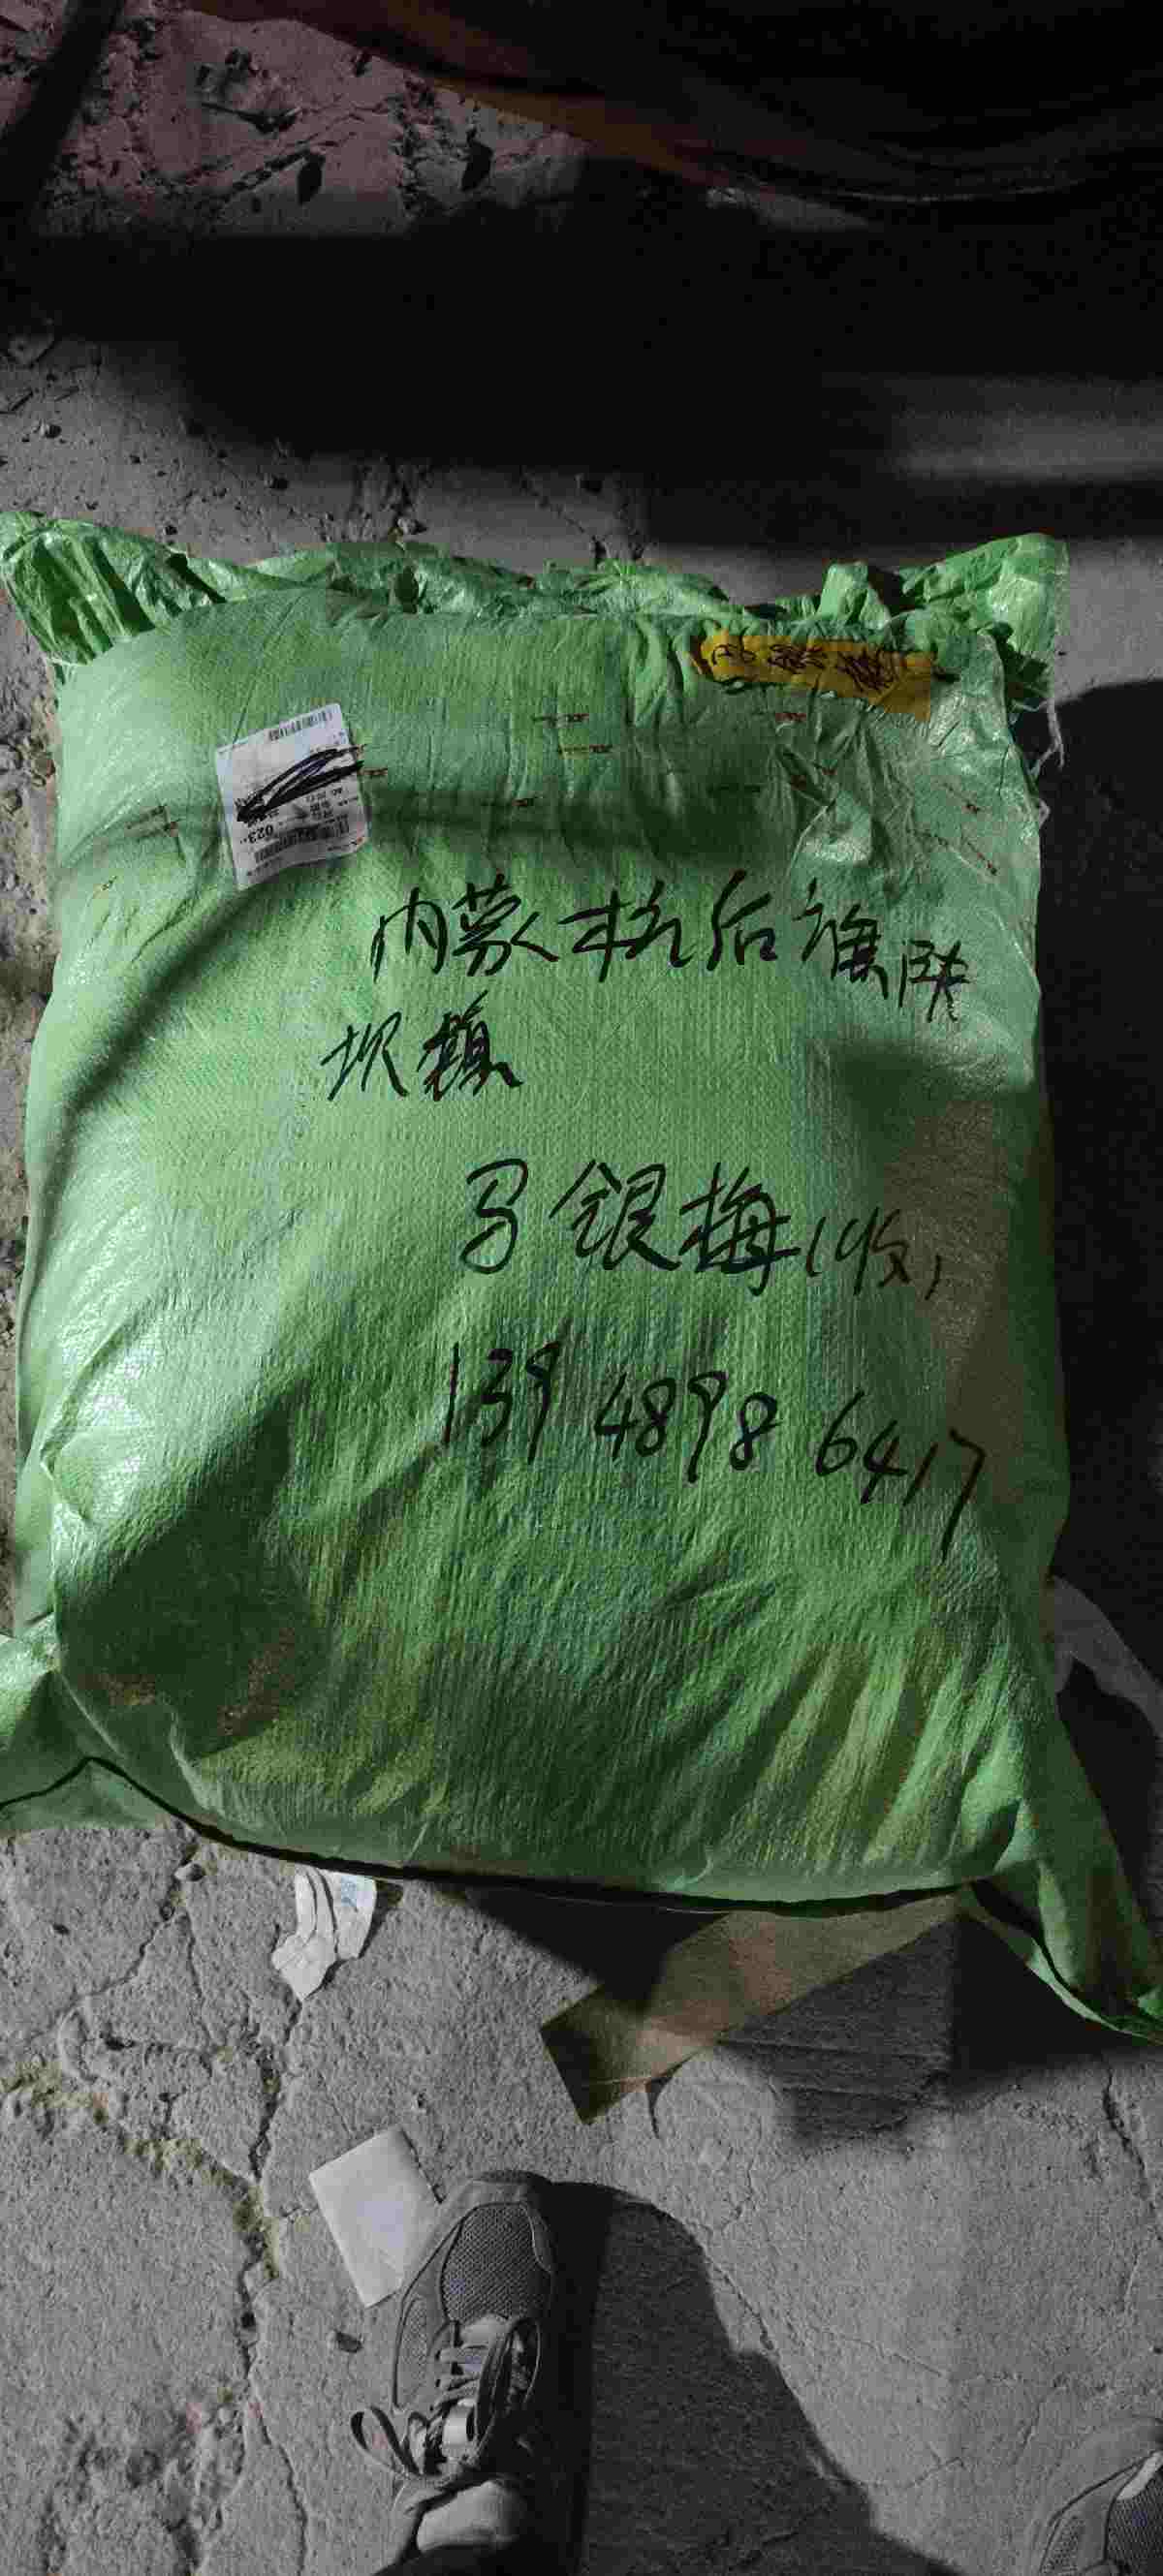 023
内蒙杭后旗陕
坝镇
马银梅（收）
139 4898 6417